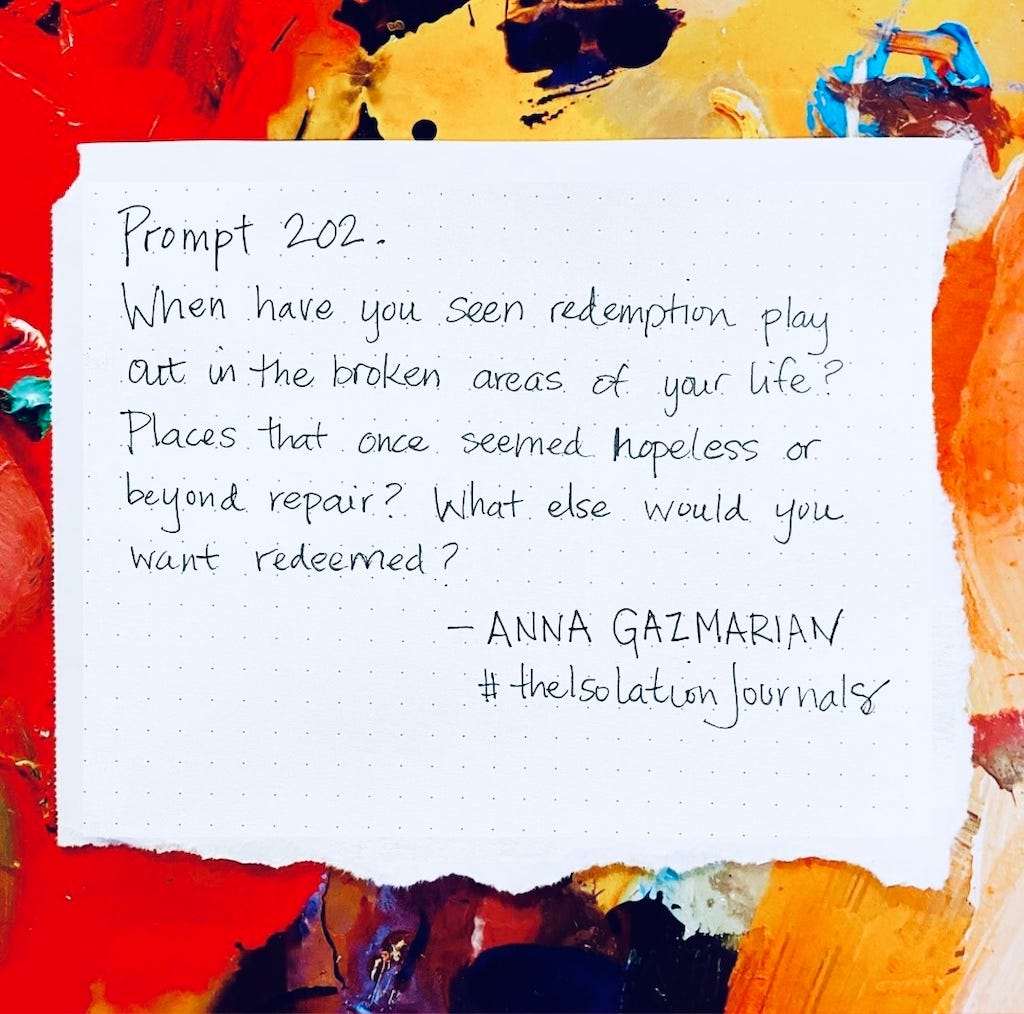 Prompt 202.
When have you seen redemption play
out in the broken areas of your life?
Places that once seemed hopeless or
beyond repair? What else would you
want redeemed?
– ANNA GAZMARIAN
#theIsolationJournals